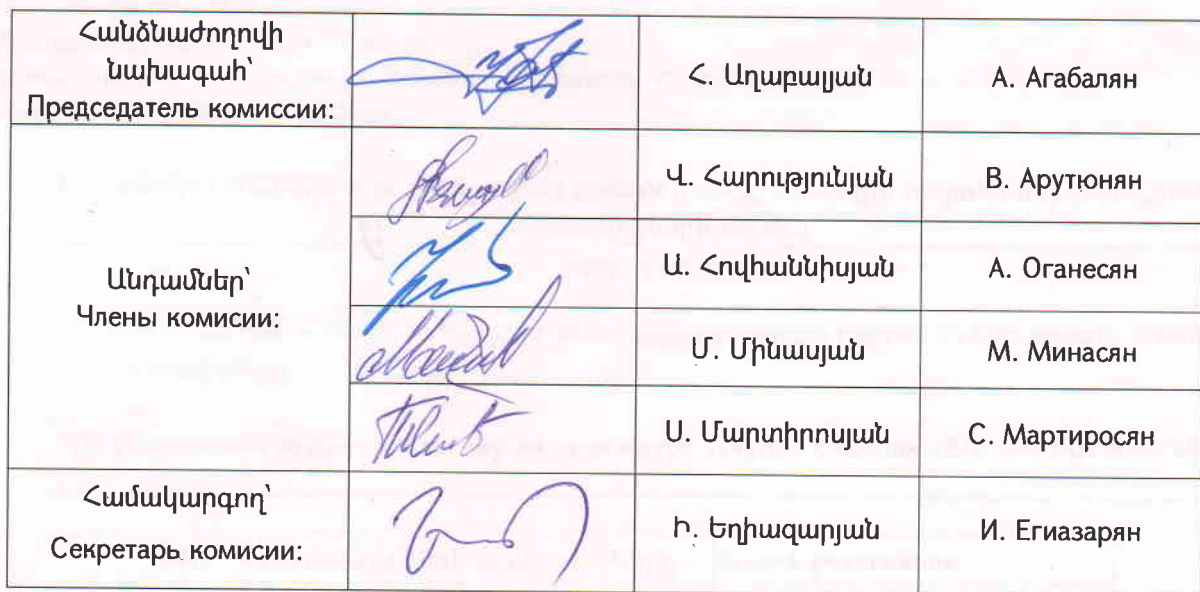 Հանձնաժողովի
նախագահ՝
Председатель комиссии:
Հ. Աղաբալյան
А. Агабалян
Վ. Հարությունյան
В. Арутюнян
Անդամներ՝
Члены комисии:
Ա. Հովհաննիսյան
А. Оганесян
Մ. Մինասյան
М. Минасян
Ս. Մարտիրոսյան
С. Мартиросян
Համակարգող՝
Секретарь комисии:
Ի. Եղիազարյան
И. Егиазарян